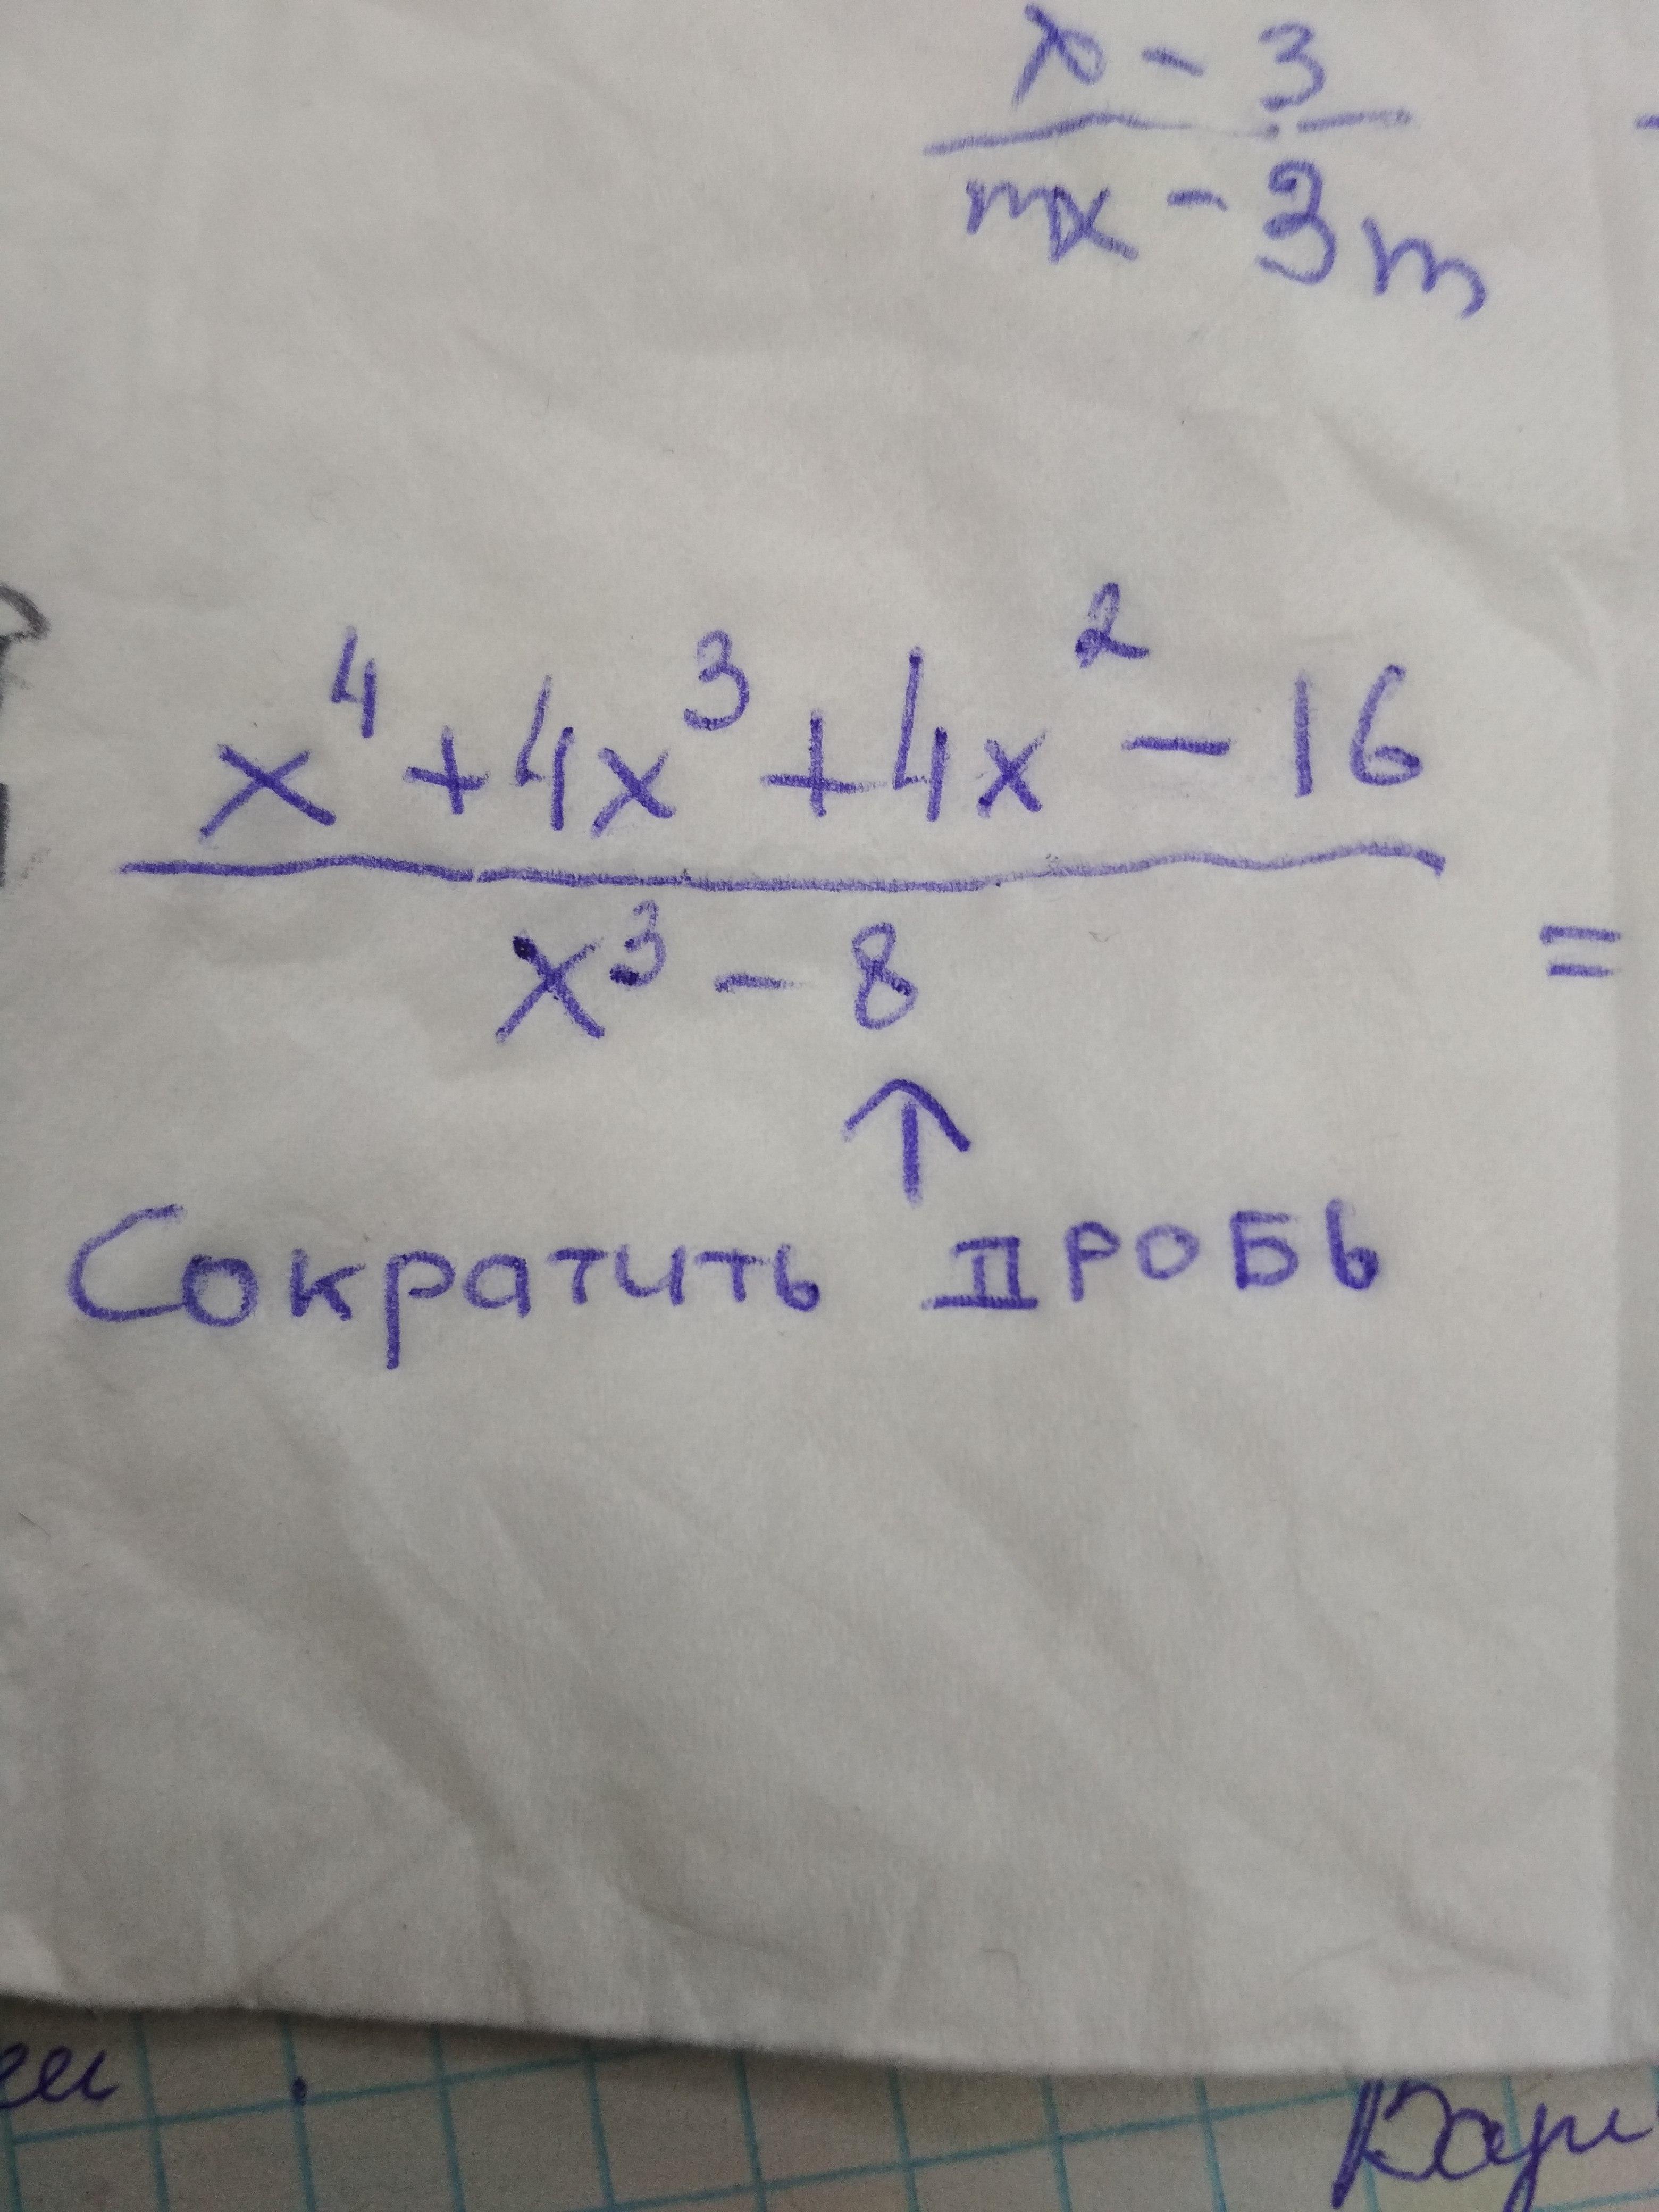 x - 3
mx - 3m
x⁴ + 4x³ + 4x² - 16
x³ - 8
=
↑
Сократить ДРОБЬ